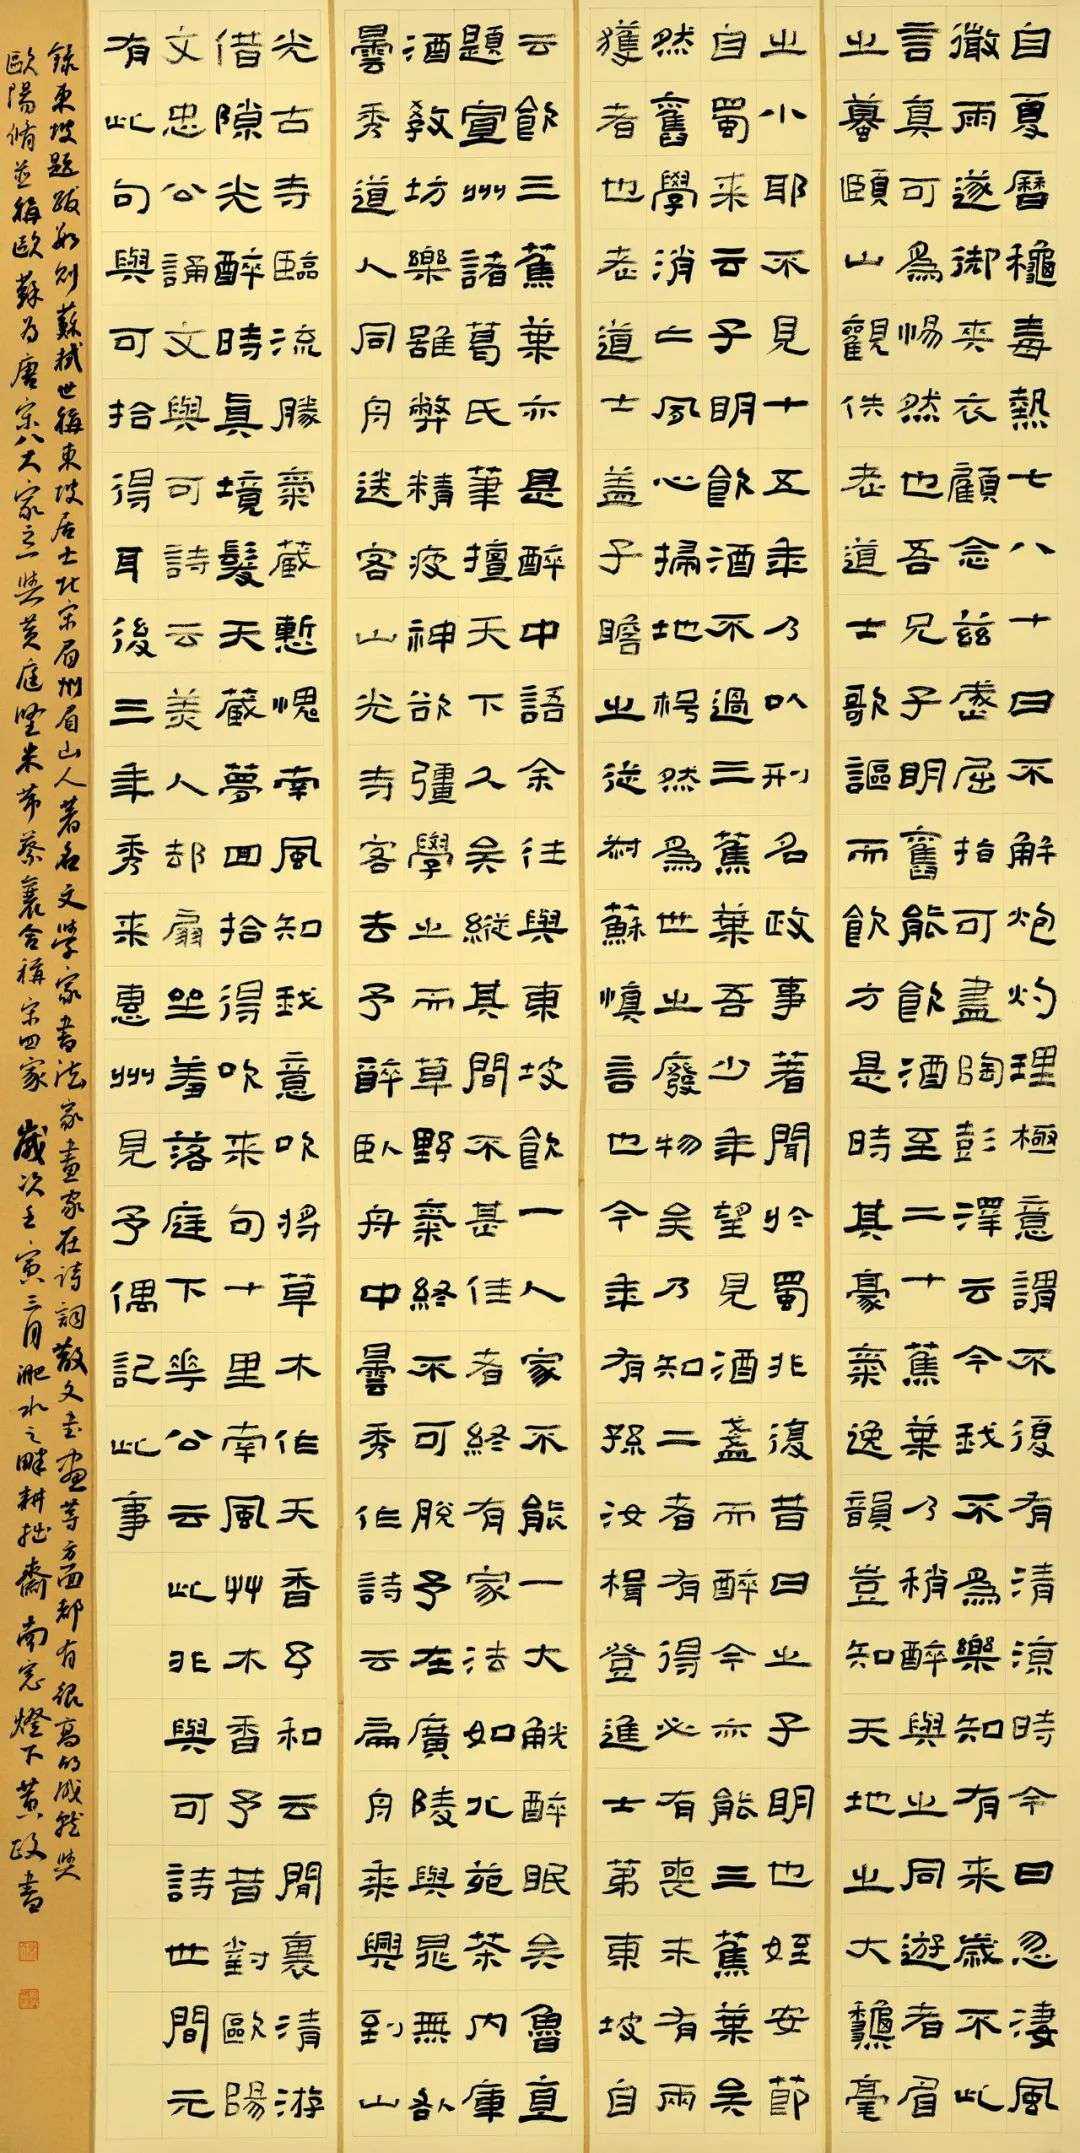 自夏曆穐毒熱七八十日不解炮灼理極意謂不復有清涼時今日忽淒風
微雨遂御夾衣顧念茲歲屈指可盡陶彭澤云今我不為樂知有来歲不此
言真可為惕然也吾兄子明舊能飲酒至二十蕉葉乃稍醉與之同遊者眉
之蟇頤山觀侁老道士歌謳而飲方是時其豪氣逸韻豈知天地之大龝毫
之小耶不見十五年乃以刑名政事著聞於蜀非復昔日之子明也姪安節
自蜀来云子明飲酒不過三蕉葉吾少年望見酒盞而醉今亦能三蕉葉矣
然舊學消亡夙心掃地枵然為世之廢物矣乃知二者有得必有喪未有兩
獲者也老道士蓋子瞻之從叔蘇慎言也今年有孫汝楫登進士第東坡自
云飲三蕉葉亦是醉中語余往與東坡飲一人家不能一大觥醉眠矣魯直
題宣州諸葛氏筆擅天下久矣縱其間不甚佳者終有家法如北苑茶內庫
酒教坊樂雖弊精疲神欲彊學之而草野氣終不可脫予在廣陵與晁無咎
曇秀道人同舟送客山光寺客去予醉臥舟中曇秀作詩云扁舟乘興到山
光古寺臨流勝氣藏慙愧南風知我意吹將草木作天香予和云閒裏清游
借隙光醉時真境髮天藏夢回拾得吹来句十里南風艸木香予昔對歐陽
文忠公誦文與可詩云美人却扇坐羞落庭下花公云此非與可詩世間元
有此句與可拾得耳後三年秀来惠州見予偶記此事
錄東坡題跋數則蘇軾世稱東坡居士北宋眉州眉山人著名文學家書法家畫家在詩詞散文書畫等方面都有很高的成就與
歐陽脩並稱歐蘇為唐宋八大家之一與黃庭堅米芾蔡襄合稱宋四家 歲次壬寅三月淝水之畔耕拙齋南窓燈下黃政書